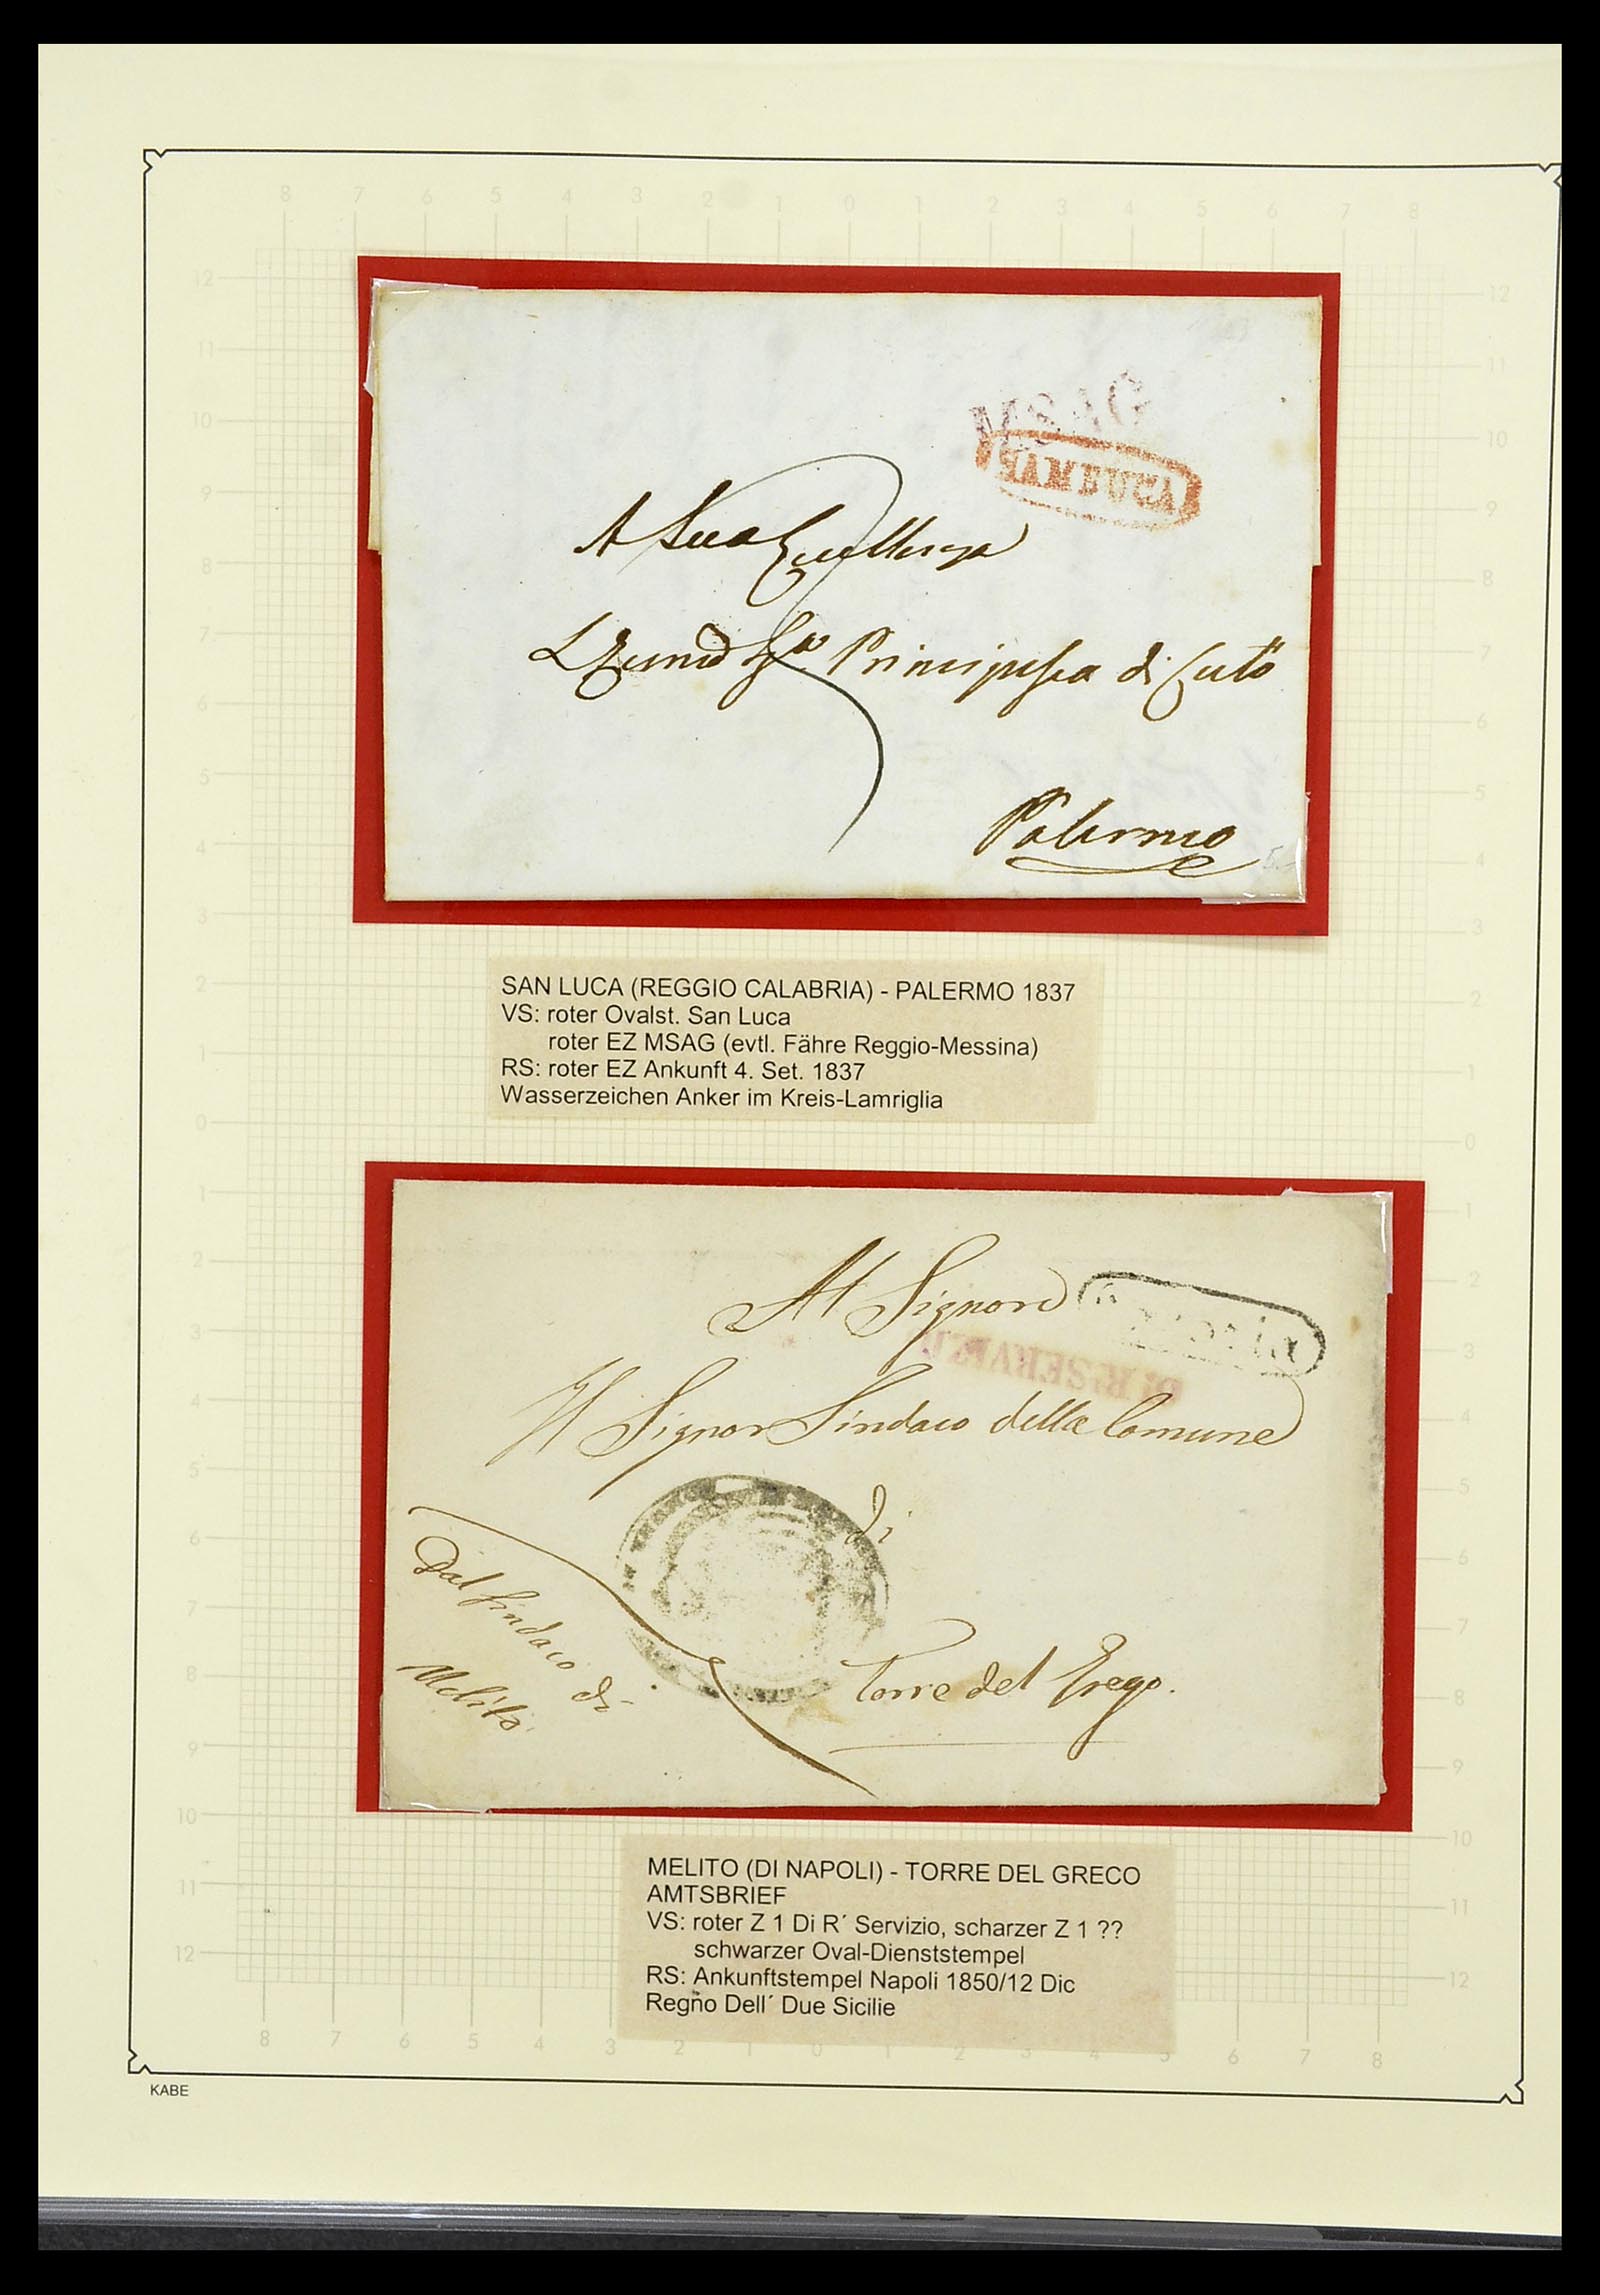 8 7 6 5 4 3 2 1 0 1 2 3 4 5 6 7 8
A Sua Eccellenza
Principessa di Cutò
Palermo
SAN LUCA (REGGIO CALABRIA) - PALERMO 1837
VS: roter Ovalst. San Luca
roter EZ MSAG (evtl. Fähre Reggio-Messina)
RS: roter EZ Ankunft 4. Set. 1837
Wasserzeichen Anker im Kreis-Lamriglia
Al Signore
DI R. SERVIZIO
Il Signor Sindaco della Comune
di
Torre del Grego.
Dal Sindaco di
Melito
MELITO (DI NAPOLI) - TORRE DEL GRECO
AMTSBRIEF
VS: roter Z 1 Di R´ Servizio, scharzer Z 1 ??
schwarzer Oval-Dienststempel
RS: Ankunftstempel Napoli 1850/12 Dic
Regno Dell´ Due Sicilie
KABE